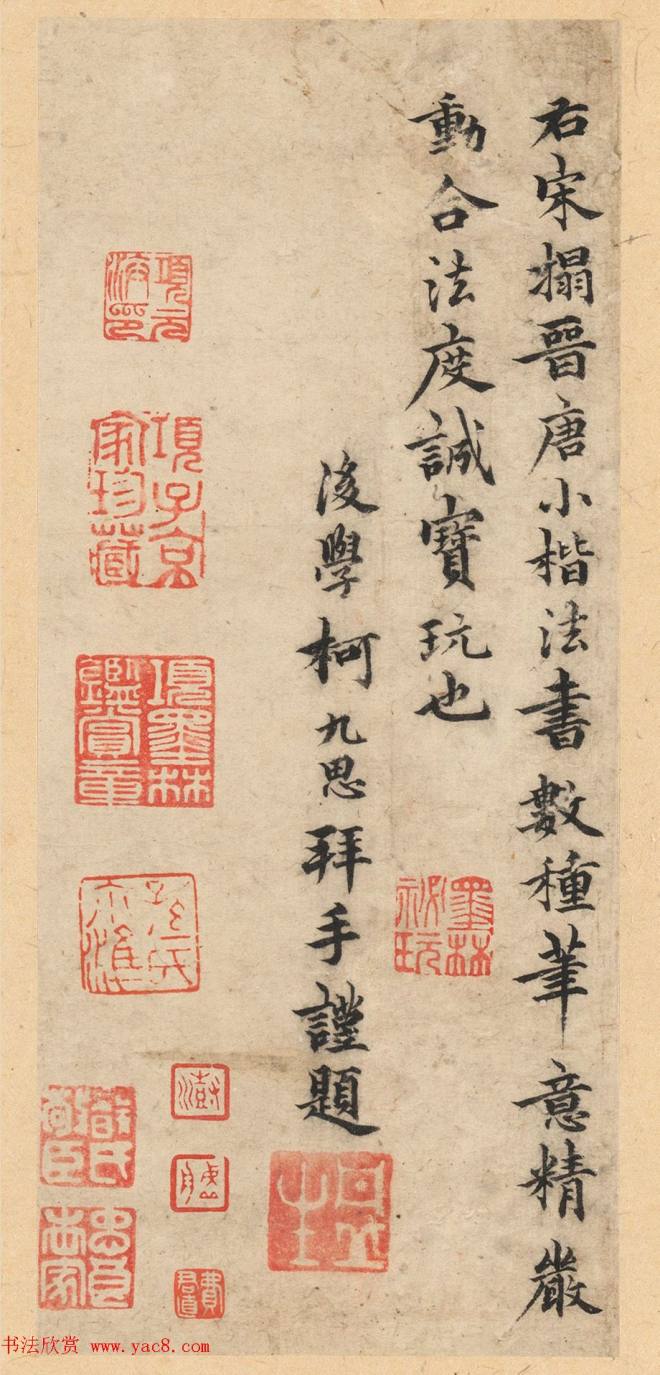 右宋搨晉唐小楷法書數種筆意精嚴
動合法度誠寶玩也
後學柯九思拜手謹題
墨林祕玩
項元汴印
項子京家珍藏
項墨林鑑賞章
忠良世家
书法欣赏 www.yac8.com